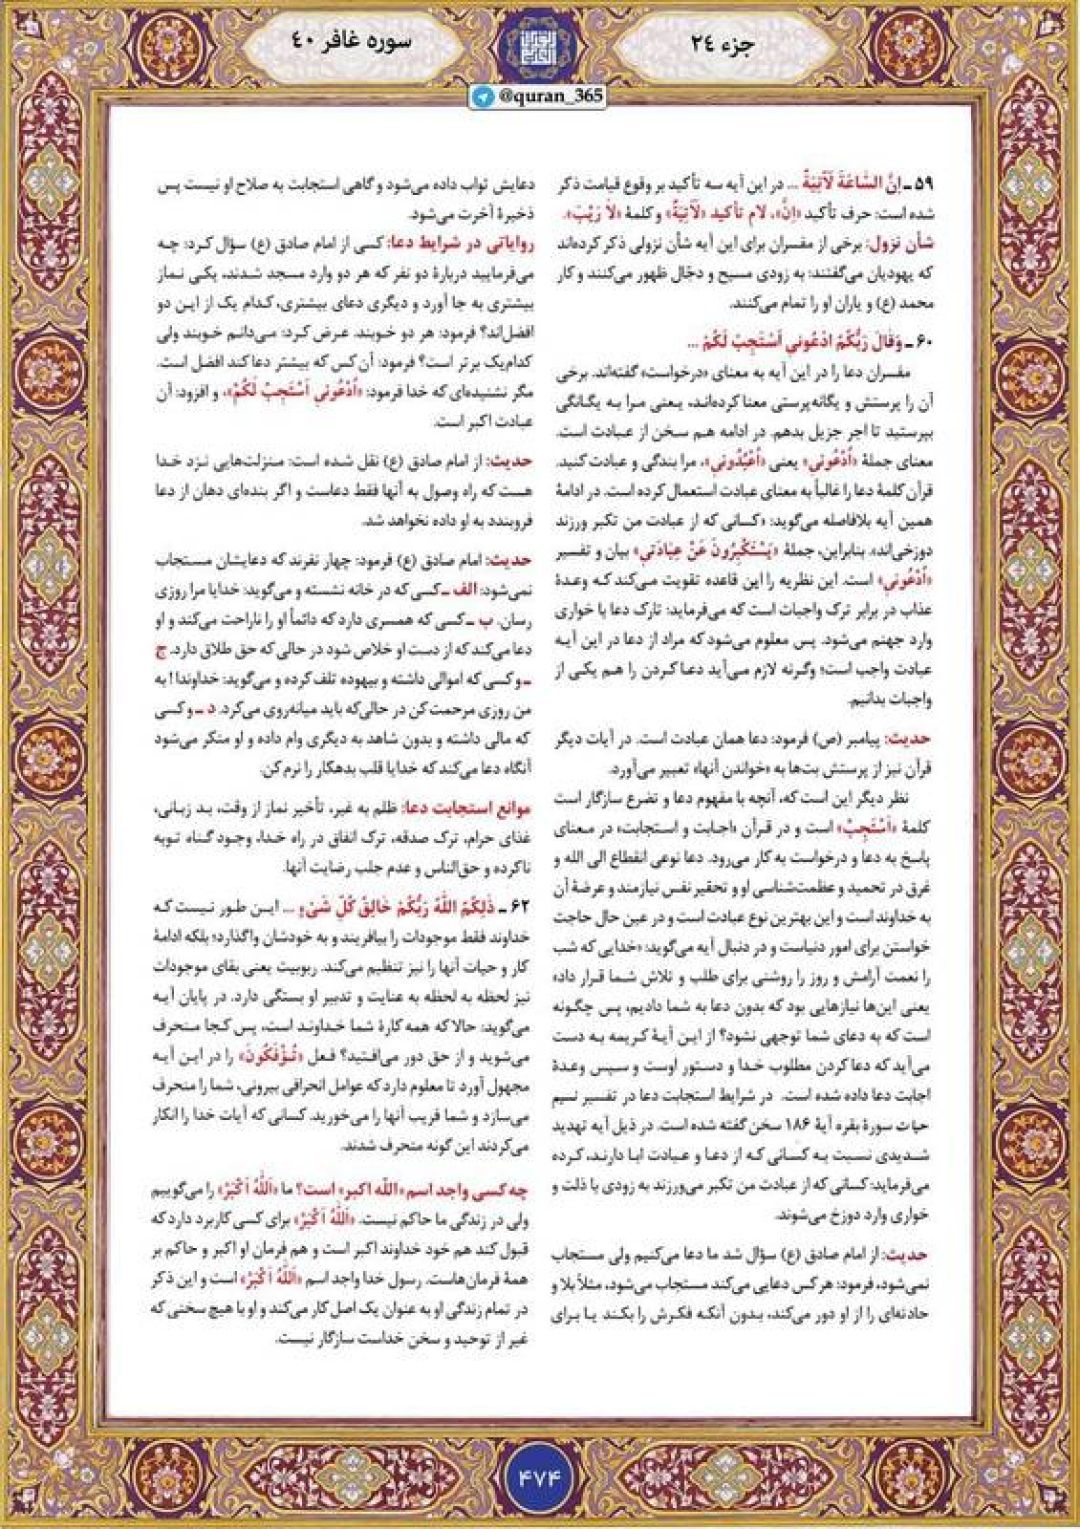 جزء ۲٤
سوره غافر ٤۰
@quran_365
۵۹ ـ اِنَّ السَّاعَةَ لَآتِیَةٌ ... در این آیه سه تأکید بر وقوع قیامت ذکر
شده است: حرف تأکید «اِنَّ»، لام تأکید «لَآتِیَةٌ» و کلمهٔ «لا رَیْبَ».
شأن نزول: برخی از مفسران برای این آیه شأن نزولی ذکر کرده‌اند
که یهودیان می‌گفتند: به زودی مسیح و دجّال ظهور می‌کنند و کار
محمد (ع) و یاران او را تمام می‌کنند.
۶۰ ـ وَقالَ رَبُّکُمُ ادْعُونی اَسْتَجِبْ لَکُمْ ...
مفسران دعا را در این آیه به معنای «درخواست» گفته‌اند. برخی
آن را پرستش و یگانه‌پرستی معنا کرده‌اند، یعنی مرا به یگانگی
بپرستید تا اجر جزیل بدهم. در ادامه هم سخن از عبادت است.
معنای جملهٔ «اُدْعُونی» یعنی «اُعْبُدُونی»، مرا بندگی و عبادت کنید.
قرآن کلمهٔ دعا را غالباً به معنای عبادت استعمال کرده است. در ادامهٔ
همین آیه بلافاصله می‌گوید: «کسانی که از عبادت من تکبر ورزند
دوزخی‌اند». بنابراین، جملهٔ «یَسْتَکْبِرُونَ عَنْ عِبادَتی» بیان و تفسیر
«اُدْعُونی» است. این نظریه را این قاعده تقویت می‌کند که وعدهٔ
عذاب در برابر ترک واجبات است که می‌فرماید: تارک دعا با خواری
وارد جهنم می‌شود. پس معلوم می‌شود که مراد از دعا در این آیه
عبادت واجب است؛ وگرنه لازم می‌آید دعا کردن را هم یکی از
واجبات بدانیم.
حدیث: پیامبر (ص) فرمود: دعا همان عبادت است. در آیات دیگر
قرآن نیز از پرستش بت‌ها به «خواندن آنها» تعبیر می‌آورد.
نظر دیگر این است که، آنچه با مفهوم دعا و تضرع سازگار است
کلمهٔ «اَسْتَجِبْ» است و در قرآن «اجابت و استجابت» در معنای
پاسخ به دعا و درخواست به کار می‌رود. دعا نوعی انقطاع الی الله و
غرق در تحمید و عظمت‌شناسی او و تحقیر نفس نیازمند و عرضهٔ آن
به خداوند است و این بهترین نوع عبادت است و در عین حال حاجت
خواستن برای امور دنیاست و در دنبال آیه می‌گوید: «خدایی که شب
را نعمت آرامش و روز را روشنی برای طلب و تلاش شما قرار داد»
یعنی این‌ها نیازهایی بود که بدون دعا به شما دادیم، پس چگونه
است که به دعای شما توجهی نشود؟ از این آیهٔ کریمه به دست
می‌آید که دعا کردن مطلوب خدا و دستور اوست و سپس وعدهٔ
اجابت دعا داده شده است. در شرایط استجابت دعا در تفسیر نسیم
حیات سورهٔ بقره آیهٔ ۱۸۶ سخن گفته شده است. در ذیل آیه تهدید
شدیدی نسبت به کسانی که از دعا و عبادت ابا دارند، کرده
می‌فرماید: کسانی که از عبادت من تکبر می‌ورزند به زودی با ذلت و
خواری وارد دوزخ می‌شوند.
حدیث: از امام صادق (ع) سؤال شد ما دعا می‌کنیم ولی مستجاب
نمی‌شود، فرمود: هر کس دعایی می‌کند مستجاب می‌شود، مثلاً بلا و
حادثه‌ای را از او دور می‌کند، بدون آنکه فکرش را بکند یا برای
دعایش ثواب داده می‌شود و گاهی استجابت به صلاح او نیست پس
ذخیرهٔ آخرت می‌شود.
روایاتی در شرایط دعا: کسی از امام صادق (ع) سؤال کرد: چه
می‌فرمایید دربارهٔ دو نفر که هر دو وارد مسجد شدند، یکی نماز
بیشتری به جا آورد و دیگری دعای بیشتری، کدام یک از این دو
افضل‌اند؟ فرمود: هر دو خوبند. عرض کرد: می‌دانم خوبند ولی
کدام‌یک برتر است؟ فرمود: آن کس که بیشتر دعا کند افضل است.
مگر نشنیده‌ای که خدا فرمود: «اُدْعُونی اَسْتَجِبْ لَکُمْ»، و افزود: آن
عبادت اکبر است.
حدیث: از امام صادق (ع) نقل شده است: منزلت‌هایی نزد خدا
هست که راه وصول به آنها فقط دعاست و اگر بنده‌ای دهان از دعا
فروبندد به او داده نخواهد شد.
حدیث: امام صادق (ع) فرمود: چهار نفرند که دعایشان مستجاب
نمی‌شود: الف ـ کسی که در خانه نشسته و می‌گوید: خدایا مرا روزی
رسان. ب ـ کسی که همسری دارد که دائماً او را ناراحت می‌کند و او
دعا می‌کند که از دست او خلاص شود در حالی که حق طلاق دارد. ج
ـ و کسی که اموالی داشته و بیهوده تلف کرده و می‌گوید: خداوندا! به
من روزی مرحمت کن در حالی‌که باید میانه‌روی می‌کرد. د ـ و کسی
که مالی داشته و بدون شاهد به دیگری وام داده و او منکر می‌شود
آنگاه دعا می‌کند که خدایا قلب بدهکار را نرم کن.
موانع استجابت دعا: ظلم به غیر، تأخیر نماز از وقت، بد زبانی،
غذای حرام، ترک صدقه، ترک انفاق در راه خدا، وجود گناه توبه
ناکرده و حق‌الناس و عدم جلب رضایت آنها.
۶۲ ـ ذٰلِکُمُ اللّٰهُ رَبُّکُمْ خالِقُ کُلِّ شَیْءٍ ... این طور نیست که
خداوند فقط موجودات را بیافریند و به خودشان واگذارد؛ بلکه ادامهٔ
کار و حیات آنها را نیز تنظیم می‌کند. ربوبیت یعنی بقای موجودات
نیز لحظه به لحظه به عنایت و تدبیر او بستگی دارد. در پایان آیه
می‌گوید: حالا که همه کارهٔ شما خداوند است، پس کجا منحرف
می‌شوید و از حق دور می‌افتید؟ فعل «تُؤْفَکُونَ» را در این آیه
مجهول آورد تا معلوم دارد که عوامل انحرافی بیرونی، شما را منحرف
می‌سازد و شما فریب آنها را می‌خورید. کسانی که آیات خدا را انکار
می‌کردند این گونه منحرف شدند.
چه کسی واجد اسم «الله اکبر» است؟ ما «اَللّٰهُ اَکْبَرُ» را می‌گوییم
ولی در زندگی ما حاکم نیست. «اَللّٰهُ اَکْبَرُ» برای کسی کاربرد دارد که
قبول کند هم خود خداوند اکبر است و هم فرمان او اکبر و حاکم بر
همهٔ فرمان‌هاست. رسول خدا واجد اسم «اَللّٰهُ اَکْبَرُ» است و این ذکر
در تمام زندگی او به عنوان یک اصل کار می‌کند و او با هیچ سخنی که
غیر از توحید و سخن خداست سازگار نیست.
۴۷۴